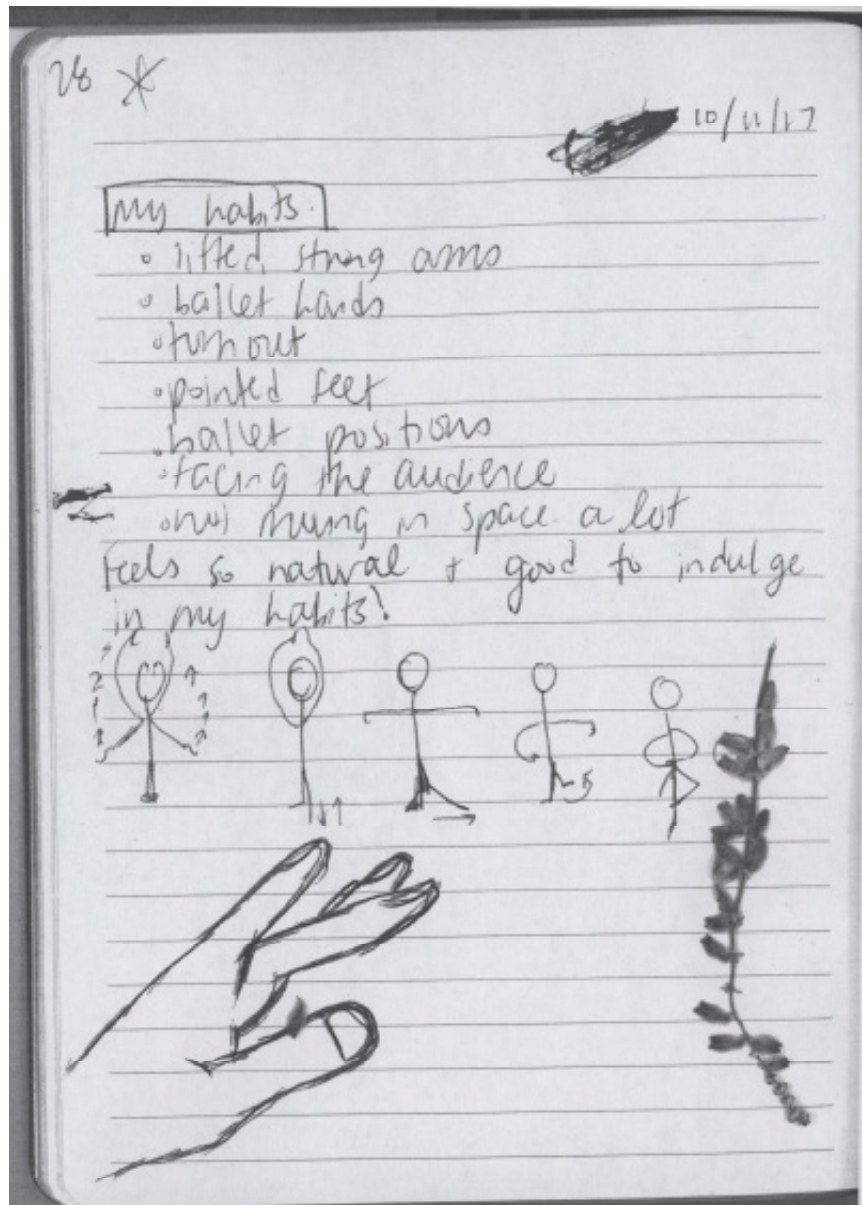 28 *
10/11/17
My habits:
• lifted, strong arms
• ballet hands
• turnout
• pointed feet
• ballet positions
• facing the audience
• not moving in space a lot
feels so natural + good to indulge
in my habits!
2
1